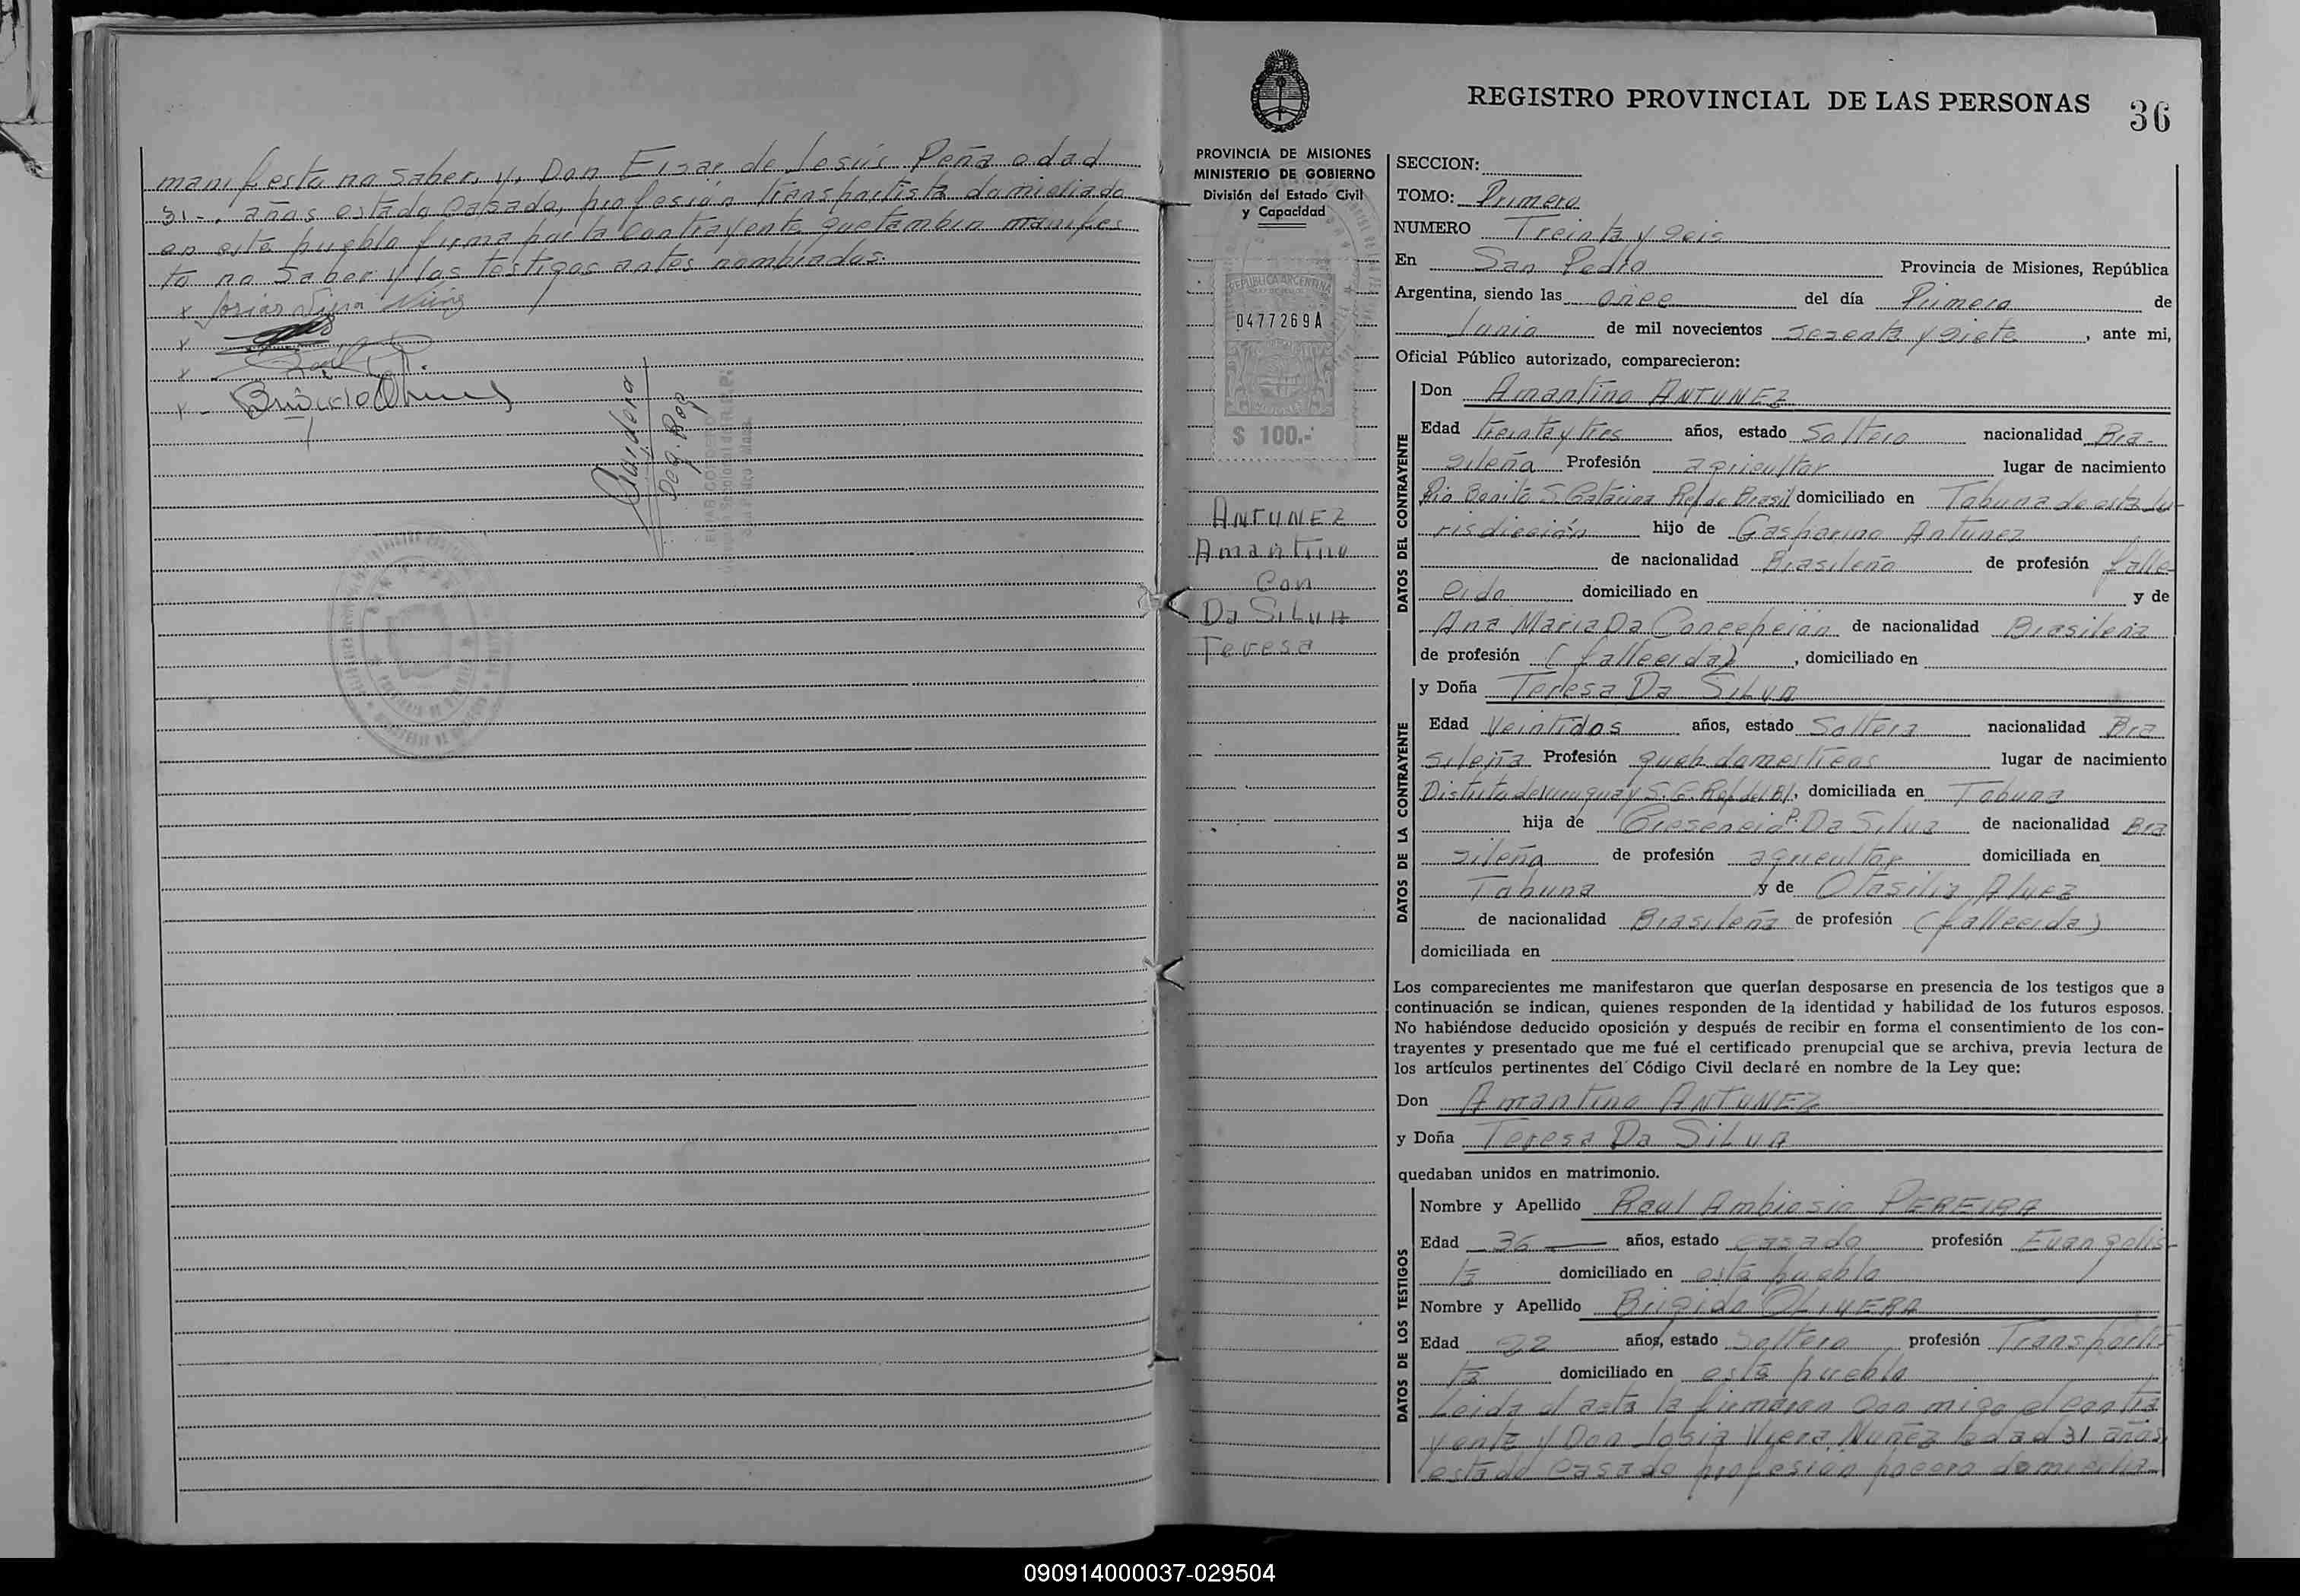 manifesto no saber, y, Don Eisar de Jesús Peña edad
31-. años estado Casado, profesión transportista domiciliado
en este pueblo firma por la Contrayente que tambien manifes
to no Saber y los testigos antes nombrados.
x
x
x
x - Brígido
REGISTRO PROVINCIAL DE LAS PERSONAS 36
PROVINCIA DE MISIONES
MINISTERIO DE GOBIERNO
División del Estado Civil
y Capacidad
REPUBLICA ARGENTINA
0477269A
$ 100.-
ANTUNEZ
Amantino
Con
Da SILVA
Teresa
SECCION:
TOMO: Primero
NUMERO Treinta y Seis
En San Pedro Provincia de Misiones, República
Argentina, siendo las once del día Primero de
Junio de mil novecientos Sesenta y Siete, ante mi,
Oficial Público autorizado, comparecieron:
DATOS DEL CONTRAYENTE
Don Amantino ANTUNEZ
Edad treinta y tres años, estado Soltero nacionalidad Bra-
sileña Profesión agricultor lugar de nacimiento
Rio Bonito S. Catarina Rep de Brasil domiciliado en Tobuna de esta Ju-
risdicción hijo de Gasparino Antunez
de nacionalidad Brasileño de profesión falle-
cido domiciliado en y de
Ana Maria Da Concepcion de nacionalidad Brasileña
de profesión (fallecida), domiciliado en
DATOS DE LA CONTRAYENTE
y Doña Teresa Da SILVA
Edad Veintidos años, estado Soltera nacionalidad Bra
sileña Profesión queh. domesticos lugar de nacimiento
Distrito de Uruguay S. C. Rep del Bl, domiciliada en Tobuna
hija de Cresencio P. Da Silva de nacionalidad Bra
sileña de profesión agricultor domiciliada en
Tobuna y de Otasilia Alvez
de nacionalidad Brasileña de profesión (fallecida)
domiciliada en
Los comparecientes me manifestaron que querían desposarse en presencia de los testigos que a
continuación se indican, quienes responden de la identidad y habilidad de los futuros esposos.
No habiéndose deducido oposición y después de recibir en forma el consentimiento de los con-
trayentes y presentado que me fué el certificado prenupcial que se archiva, previa lectura de
los artículos pertinentes del Código Civil declaré en nombre de la Ley que:
Don Amantino ANTUNEZ
y Doña Teresa Da SILVA
quedaban unidos en matrimonio.
DATOS DE LOS TESTIGOS
Nombre y Apellido Raul Ambrosio PEREIRA
Edad 36 años, estado casado profesión Evangelis-
ta domiciliado en este pueblo
Nombre y Apellido Brigido OLIVERA
Edad 22 años, estado Soltero profesión Transportis-
ta domiciliado en este pueblo
Leida el acta la firmaron con migo el contra
yente y Don Josia Viera Nuñez edad 31 años,
estado Casado profesión pocero domicilia
090914000037-029504